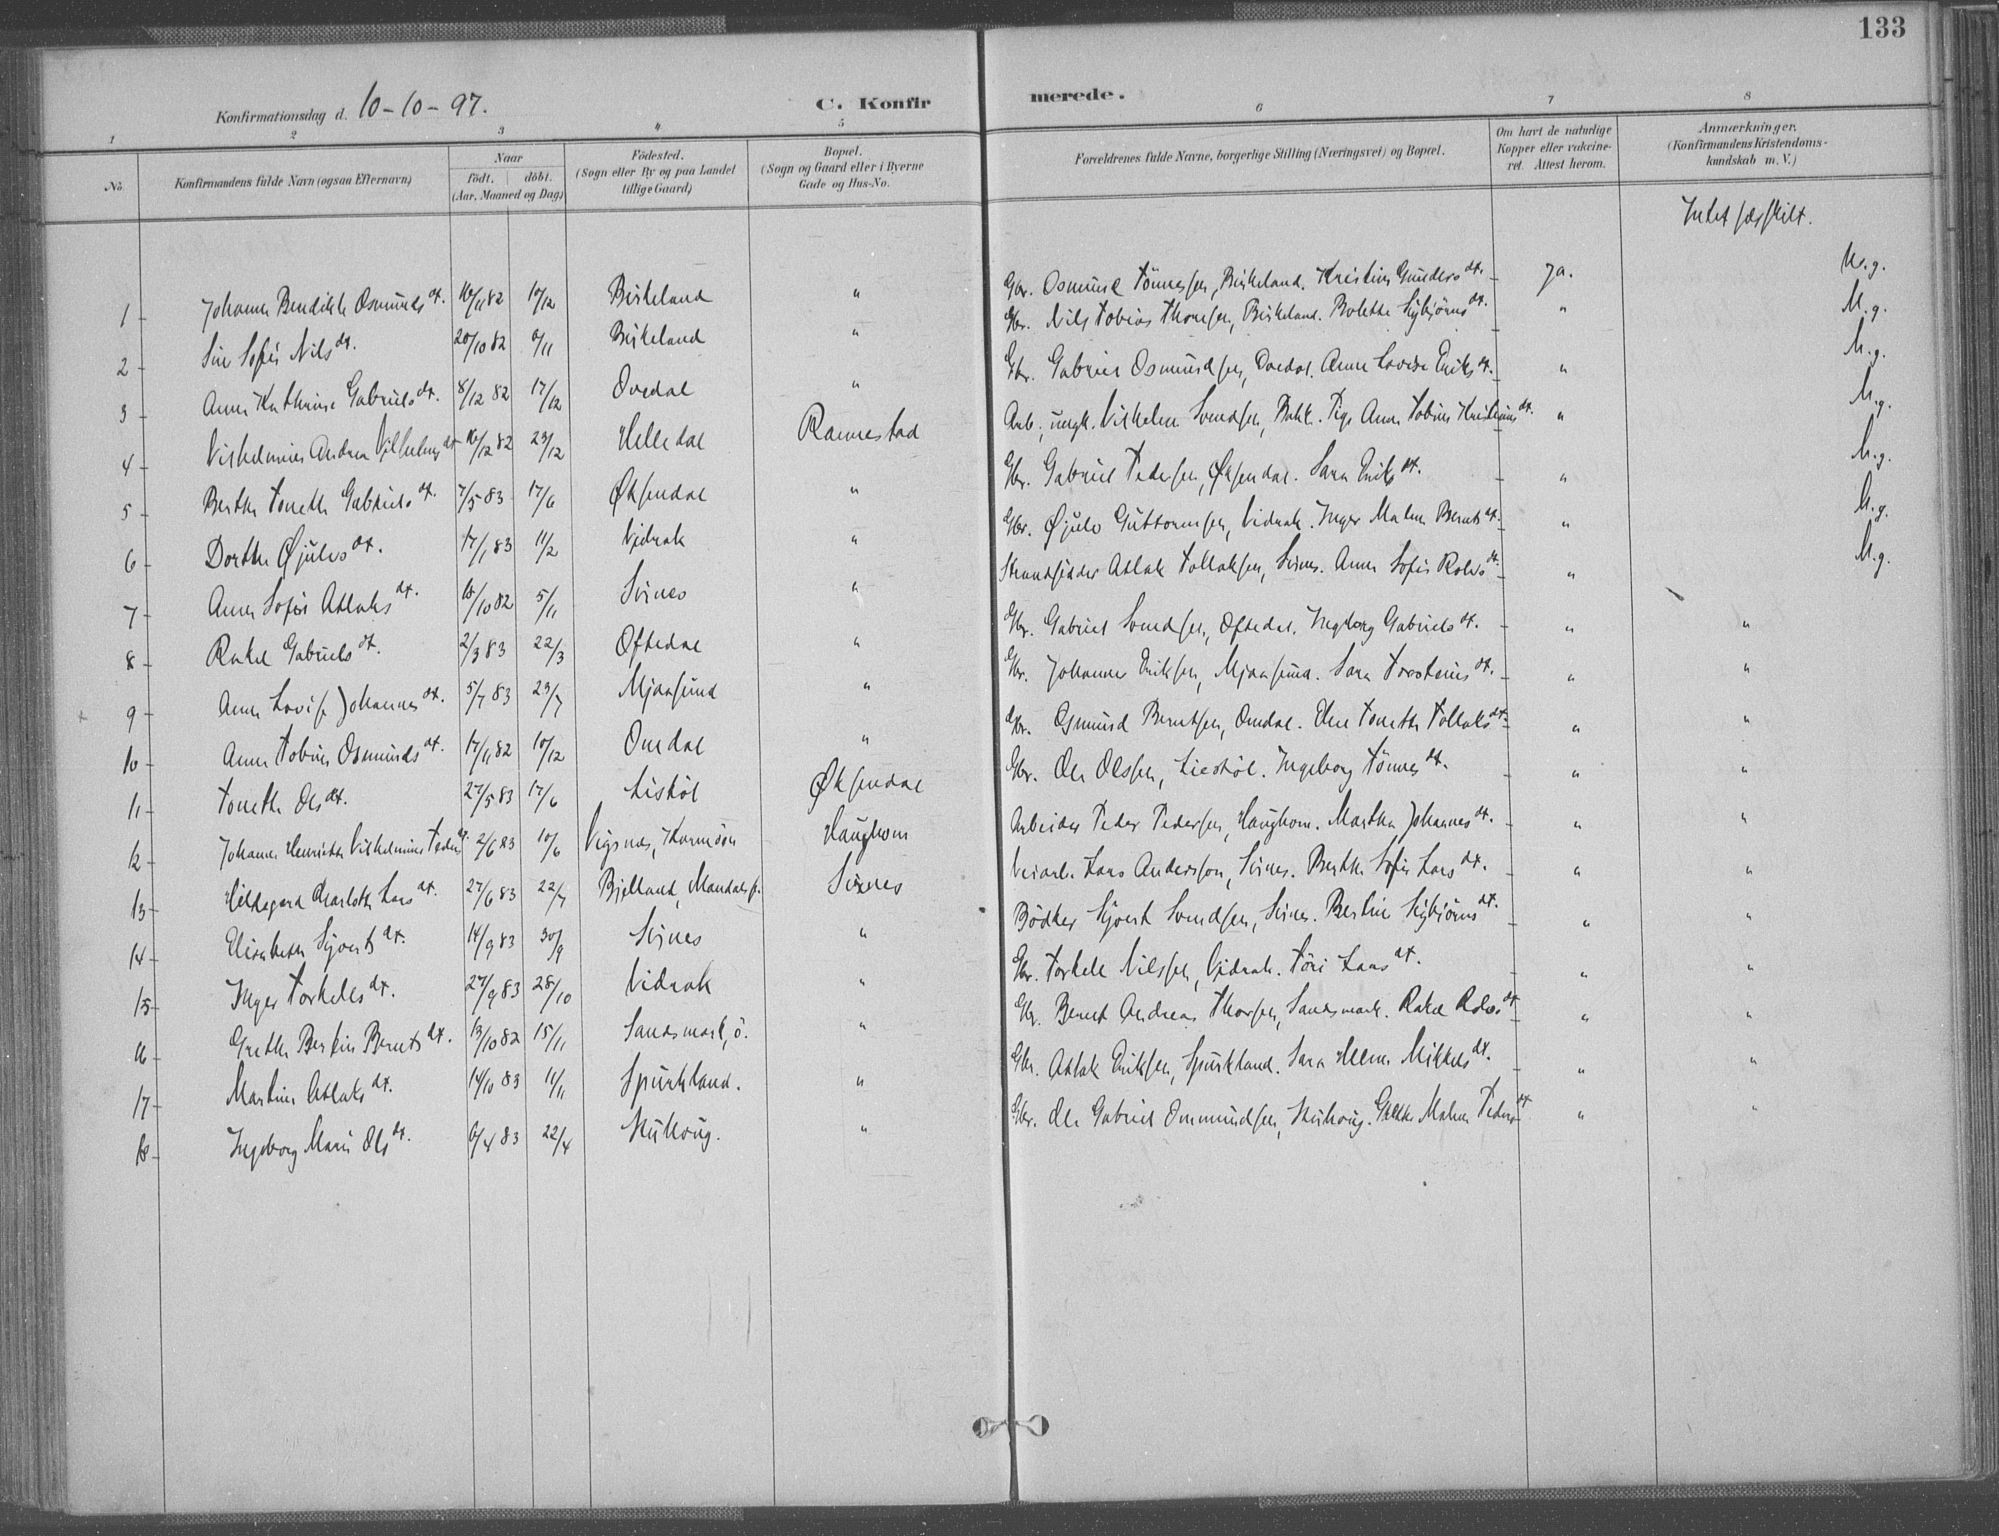 133
Konfirmationsdag d. 10-10-97.
C. Konfirmerede.
1 2 3 4 5 6 7 8
No. Konfirmandens fulde Navn (ogsaa Efternavn) Naar födt. döbt. (Aar, Maaned og Dag) Födested. (Sogn eller By og paa Landet tillige Gaard) Bopæl. (Sogn og Gaard eller i Byerne Gade og Hus-No. Forældrenes fulde Navne, borgerlige Stilling (Næringsvei) og Bopæl. Om havt de naturlige Kopper eller vakcineret. Attest herom. Anmærkninger. (Konfirmandens Kristendomskundskab m. V.)
Intet særskilt.
1 Johanne Bendikte Osmundsdt. 16/11 82 10/12 Birkeland " Gbr. Osmund Tönnessen, Birkeland. Kristine Gundersdt. ja. M.g.
2 Sine Sofie Nilsdt. 20/10 82 /11 Birkeland " Gbr. Nils Tobias Thomsen, Birkeland. Bolette Sigbjörnsdt. " M.g.
3 Anne Kathrine Gabrielsdt. 8/12 82 17/12 Ovedal " Gbr. Gabriel Osmundsen, Ovedal. Anne Lovise Eriksdt. " M.g.
4 Vilhelmine Andrea Vilhelmsdt. 16/12 82 23/12 Helledal Rannestad Arb., ungk. Vilhelm Svendsen, Bakke. Pige Anne Tobine Kristiansdt. " M.g.
5 Berthe Tonette Gabrielsdt. 7/5 83 17/6 Øksendal " Gbr. Gabriel Pedersen, Øksendal. Sara Eriksdt. " M.g.
6 Dorthe Øjulvsdt. 17/1 83 11/2 Vidrak " Gbr. Øjulv Guttormsen, Vidrak. Inger Malene Berntsdt. " M.g.
7 Anne Sofie Atlaksdt. 18/10 82 5/11 Sirnes " Strandsidder Atlak Tollaksen, Sirnes. Anne Sofie Rolvsdt. " M.g.
8 Rakel Gabrielsdt. 2/3 83 22/3 Oftedal " Gbr. Gabriel Svendsen, Oftedal. Ingeborg Gabrielsdt. " "
9 Anne Lovise Johannesdt. 5/7 83 23/7 Mjaasund " Gbr. Johannes Eriksen, Mjaasund. Sara Torstensdt. " "
10 Anne Tobine Osmundsdt. 17/11 82 10/12 Omdal " Gbr. Osmund Berntsen, Omdal. Elen Tonette Tollaksdt. " "
11 Tonette Olsdt. 27/5 83 17/6 Listöl Øksendal Gbr. Ole Olssen, Liestöl. Ingeborg Tönnesdt. " "
12 Johanne Henriette Vilhelmine Pedersdt. 2/6 83 10/6 Vigsnes, Karmöen Haughom Arbeider Peder Pedersen, Haughom. Martha Johannesdt. " "
13 Hildegard Charlotte Larsdt. 27/6 83 22/7 Bjelland, Mandals p. Sirnes Veiarb. Lars Anderssen, Sirnes. Berthe Sofie Larsdt. " "
14 Elisabeth Sjvertsdt. 14/9 83 30/9 Sirnes " Bödker Sjvert Svendsen, Sirnes. Bertine Sigbjörnsdt. " "
15 Inger Torkelsdt. 27/9 83 28/10 Vidrak " Gbr. Torkell Nilssen, Vidrak. Töri Larsdt. " "
16 Grethe Bertine Berntsdt. 13/10 82 15/11 Sandsmark, ö. " Gbr. Bernt Andreas Thorsen, Sandsmark. Rakel Rolvsdt. " "
17 Martine Atlaksdt. 14/10 83 11/11 Spurkland. " Gbr. Atlak Eriksen, Spurkland. Sara Helene Mikkelsdt. " "
18 Ingeborg Marie Olsdt. 6/4 83 22/4 " Gbr. Ole Gabriel Ommundsen, Grethe Malene Pedersdt. " "